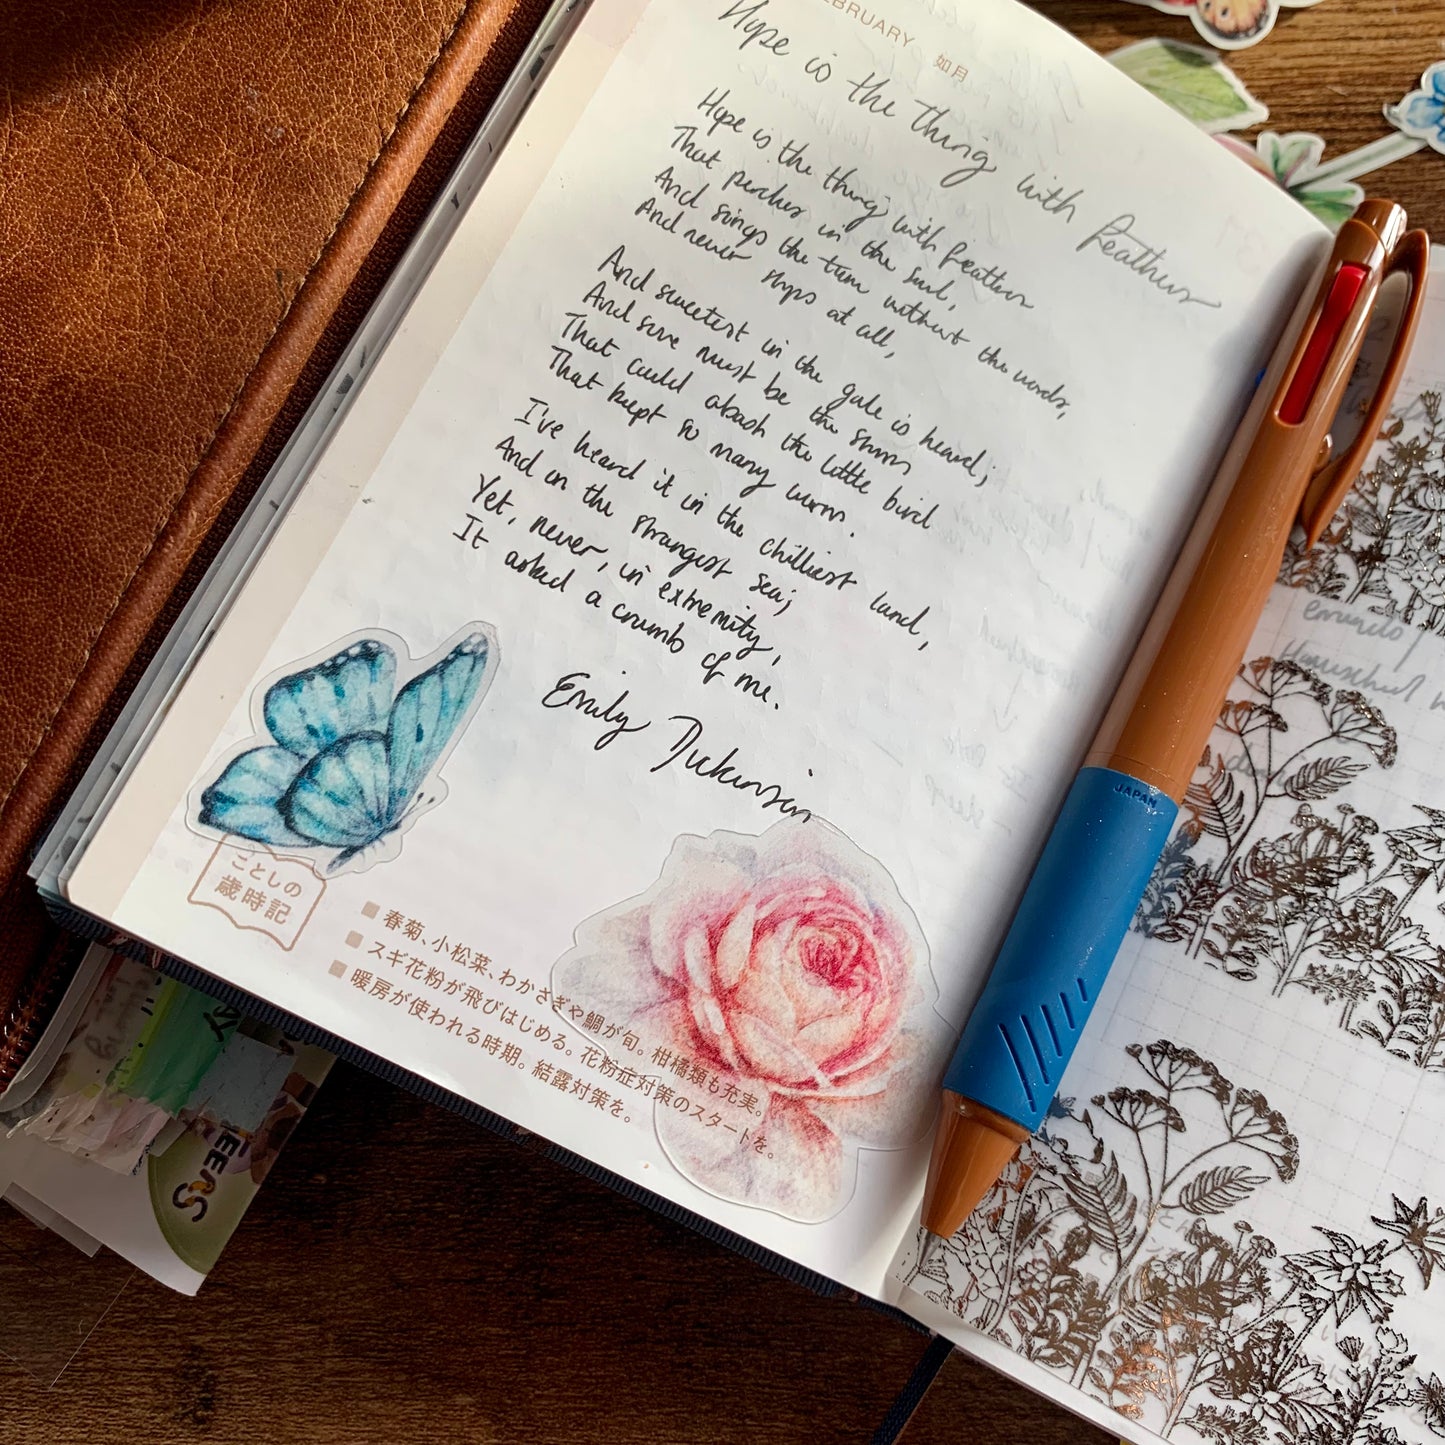 FEBRUARY 如月
Hope is the thing with feathers
Hope is the thing with feathers
That perches in the soul,
And sings the tune without the words,
And never stops at all,
And sweetest in the gale is heard;
And sore must be the storm
That could abash the little bird
That kept so many warm.
I've heard it in the chilliest land,
And on the strangest sea;
Yet, never, in extremity,
It asked a crumb of me.
Emily Dickinson
ことしの
歳時記
■ 春菊、小松菜、わかさぎや鯛が旬。柑橘類も充実。
■ スギ花粉が飛びはじめる。花粉症対策のスタートを。
■ 暖房が使われる時期。結露対策を。
JAPAN